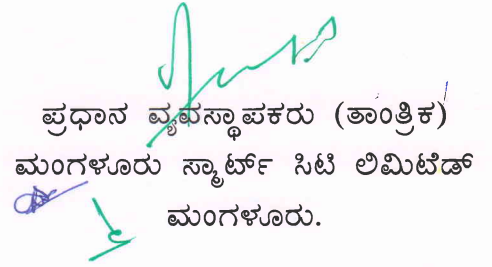 ಪ್ರಧಾನ ವ್ಯವಸ್ಥಾಪಕರು (ತಾಂತ್ರಿಕ)
ಮಂಗಳೂರು ಸ್ಮಾರ್ಟ್ ಸಿಟಿ ಲಿಮಿಟೆಡ್
ಮಂಗಳೂರು.